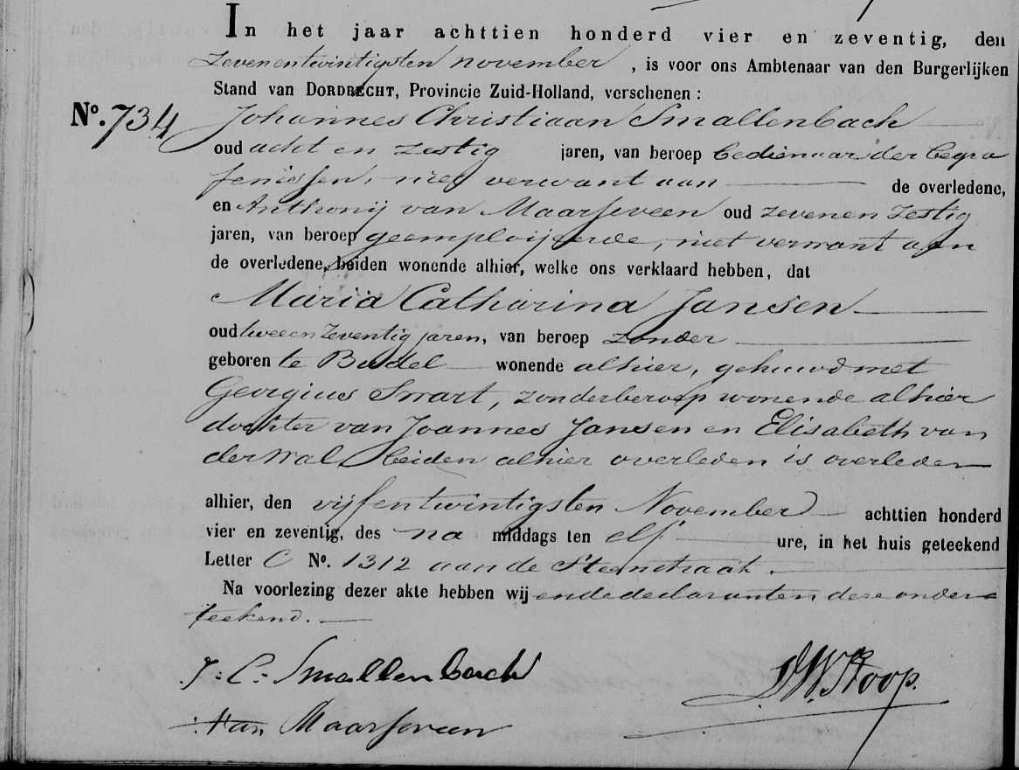 In het jaar achttien honderd vier en zeventig, den
zevenentwintigsten november, is voor ons Ambtenaar van den Burgerlijken
Stand van DORDRECHT, Provincie Zuid-Holland, verschenen:
No. 734 Johannes Christiaan Smallenbach
oud acht en zestig jaren, van beroep bedienaar der begra
fenissen, niet verwant aan de overledene,
en Anthonij van Maarseveen oud zeven en zestig
jaren, van beroep geemploijeerde, niet verwant aan
de overledene, beiden wonende alhier, welke ons verklaard hebben, dat
Maria Catharina Jansen
oud twee en zeventig jaren, van beroep zonder
geboren te Budel wonende alhier, gehuwd met
Georgius Smart, zonder beroep wonende alhier
dochter van Joannes Jansen en Elisabeth van
der Wal, beiden alhier overleden is overleden
alhier, den vijfentwintigsten November achttien honderd
vier en zeventig, des na middags ten elf ure, in het huis geteekend
Letter C No. 1312 aan de Steenstraat.
Na voorlezing dezer akte hebben wij en de declaranten deze onder=
teekend.
J: C: Smallenbach
D.W. Stoop.
A van Maarseveen